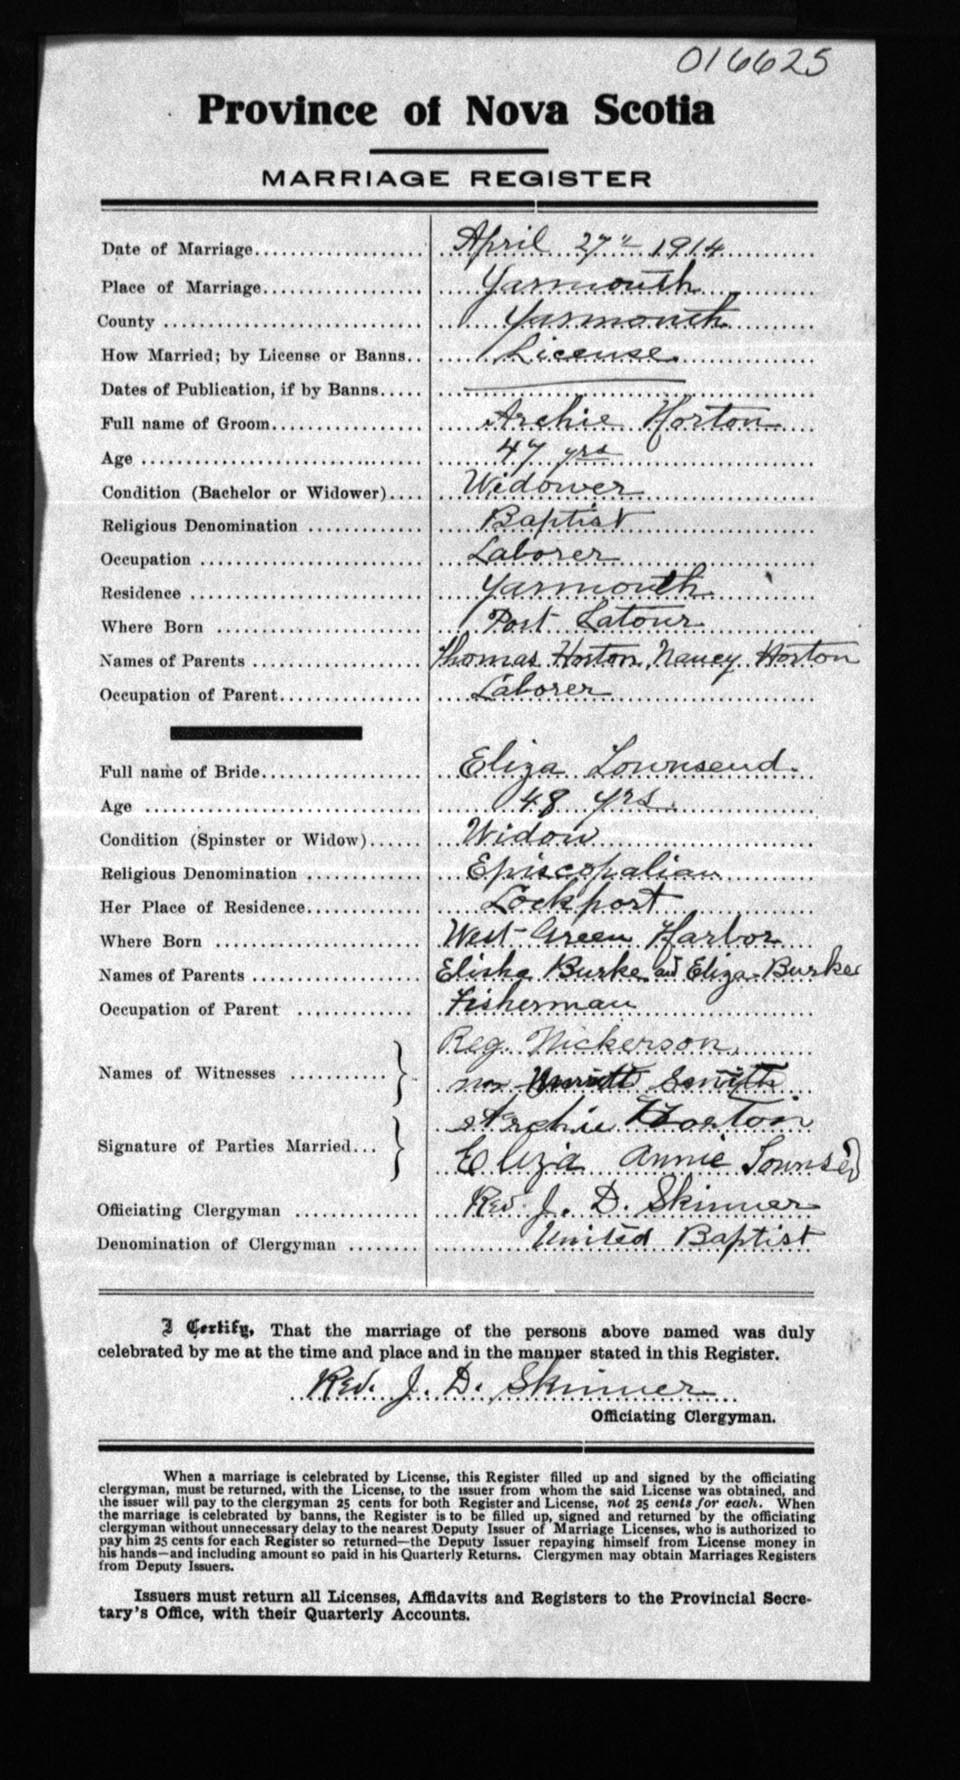 016625
Province of Nova Scotia
MARRIAGE REGISTER
Date of Marriage.................... April 27th 1914
Place of Marriage................... Yarmouth
County .............................. Yarmouth
How Married; by License or Banns.. License
Dates of Publication, if by Banns.....
Full name of Groom.................. Archie Horton
Age .................................. 47 yrs
Condition (Bachelor or Widower).... Widower
Religious Denomination ............. Baptist
Occupation .......................... Laborer
Residence ........................... Yarmouth
Where Born ........................ Port Latour
Names of Parents .................... Thomas Horton, Nancy Horton
Occupation of Parent................. Laborer
Full name of Bride................... Eliza Townsend
Age ................................. 48 yrs.
Condition (Spinster or Widow)...... Widow
Religious Denomination ............. Episcopalian
Her Place of Residence.............. Lockport
Where Born ........................ West Green Harbor
Names of Parents .................... Elisha Burke and Eliza Burke
Occupation of Parent .............. Fisherman
Names of Witnesses ........... } Reg. Nickerson
Smith
Signature of Parties Married... } Archie Horton
Eliza Annie Townsed
Officiating Clergyman .............. Rev. J. D. Skinner
Denomination of Clergyman ........ United Baptist
I Certify, That the marriage of the persons above named was duly
celebrated by me at the time and place and in the manner stated in this Register.
Rev. J. D. Skinner
Officiating Clergyman.
When a marriage is celebrated by License, this Register filled up and signed by the officiating
clergyman, must be returned, with the License, to the issuer from whom the said License was obtained, and
the issuer will pay to the clergyman 25 cents for both Register and License, not 25 cents for each. When
the marriage is celebrated by banns, the Register is to be filled up, signed and returned by the officiating
clergyman without unnecessary delay to the nearest Deputy Issuer of Marriage Licenses, who is authorized to
pay him 25 cents for each Register so returned—the Deputy Issuer repaying himself from License money in
his hands—and including amount so paid in his Quarterly Returns. Clergymen may obtain Marriages Registers
from Deputy Issuers.
Issuers must return all Licenses, Affidavits and Registers to the Provincial Secre-
tary's Office, with their Quarterly Accounts.